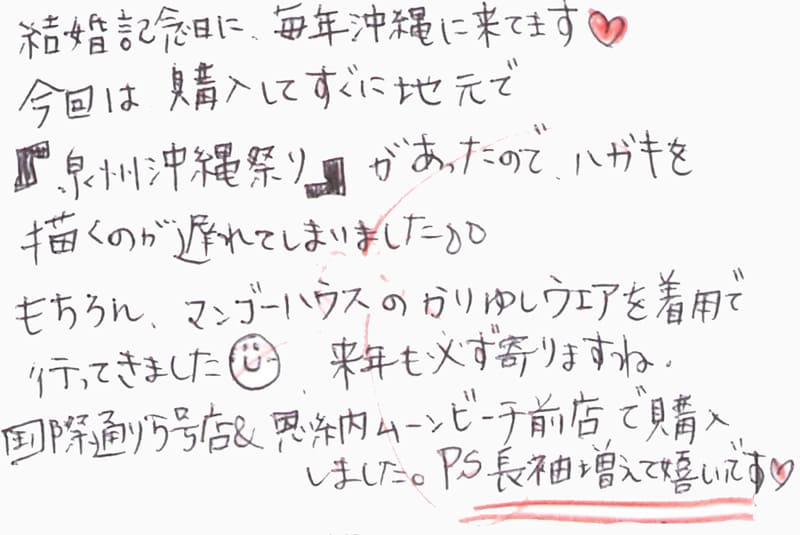 結婚記念日に、毎年沖縄に来てます♥
今回は購入してすぐに地元で
『泉州沖縄祭り』があったので、ハガキを
描くのが遅れてしまいました００
もちろん、マンゴーハウスのかりゆしウエアを着用で
行ってきました☺ 来年も必ず寄りますね。
国際通り5号店&恩納ムーンビーチ前店で購入
しました。PS 長袖増えて嬉いです♥